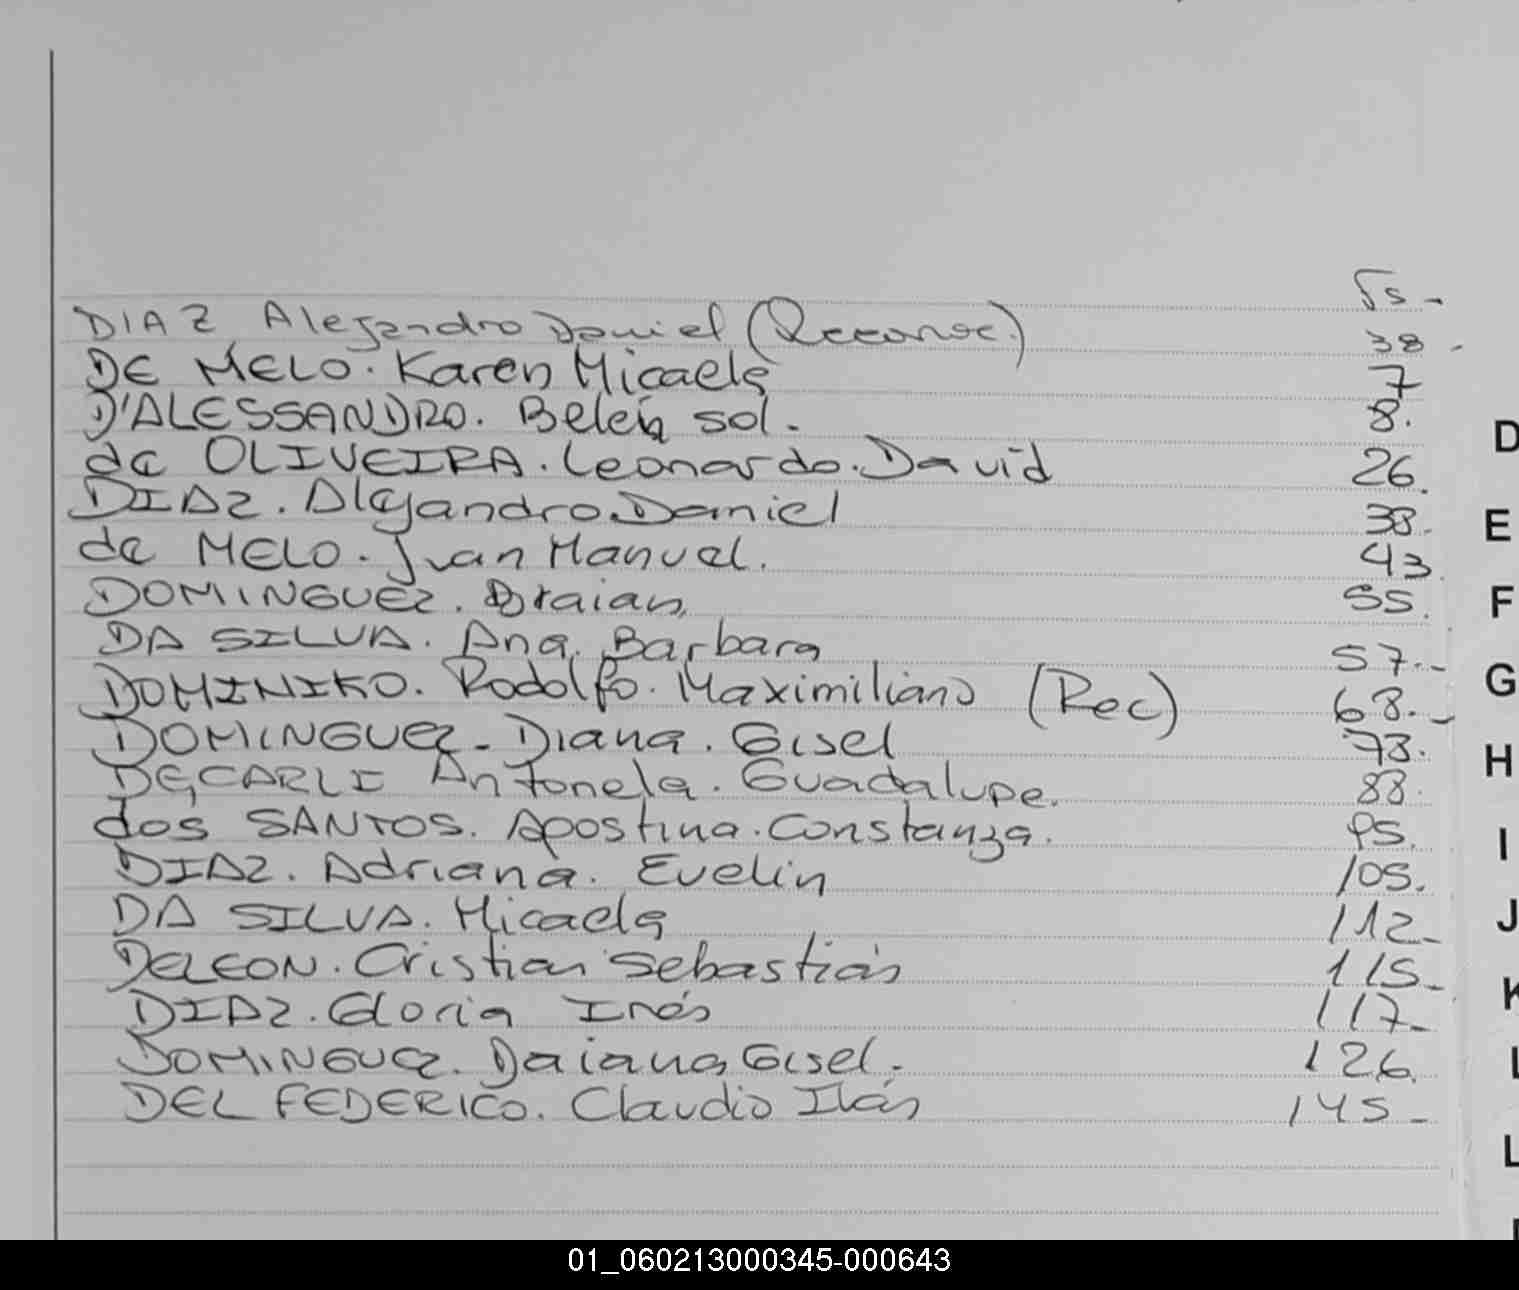 Fs -
DIAZ Alejandro Daniel (Reconoc.) 38 -
DE MELO. Karen Micaela 7
D'ALESSANDRO. Belén sol. 8.
de OLIVEIRA. Leonardo. David 26.
DIAZ. Alejandro. Daniel 38.
de MELO. Juan Manuel. 43.
DOMINGUEZ. Braian 55.
DA SILVA. Ana. Barbara 57.-
DOMINIKO. Rodolfo. Maximiliano (Rec) 68.-
DOMINGUEZ. Diana. Gisel 78.
DECARLI Antonela. Guadalupe. 88.
dos SANTOS. Apostina. Constanza. 95.
DIAZ. Adriana. Evelin 105.
DA SILVA. Micaela 112-
DELEON. Cristian Sebastián 115-
DIAZ. Gloria Inés 117-
DOMINGUEZ. Daiana Gisel. 126.
DEL FEDERICO. Claudio Ilán 145-
D
E
F
G
H
I
J
K
L
L
01_060213000345-000643